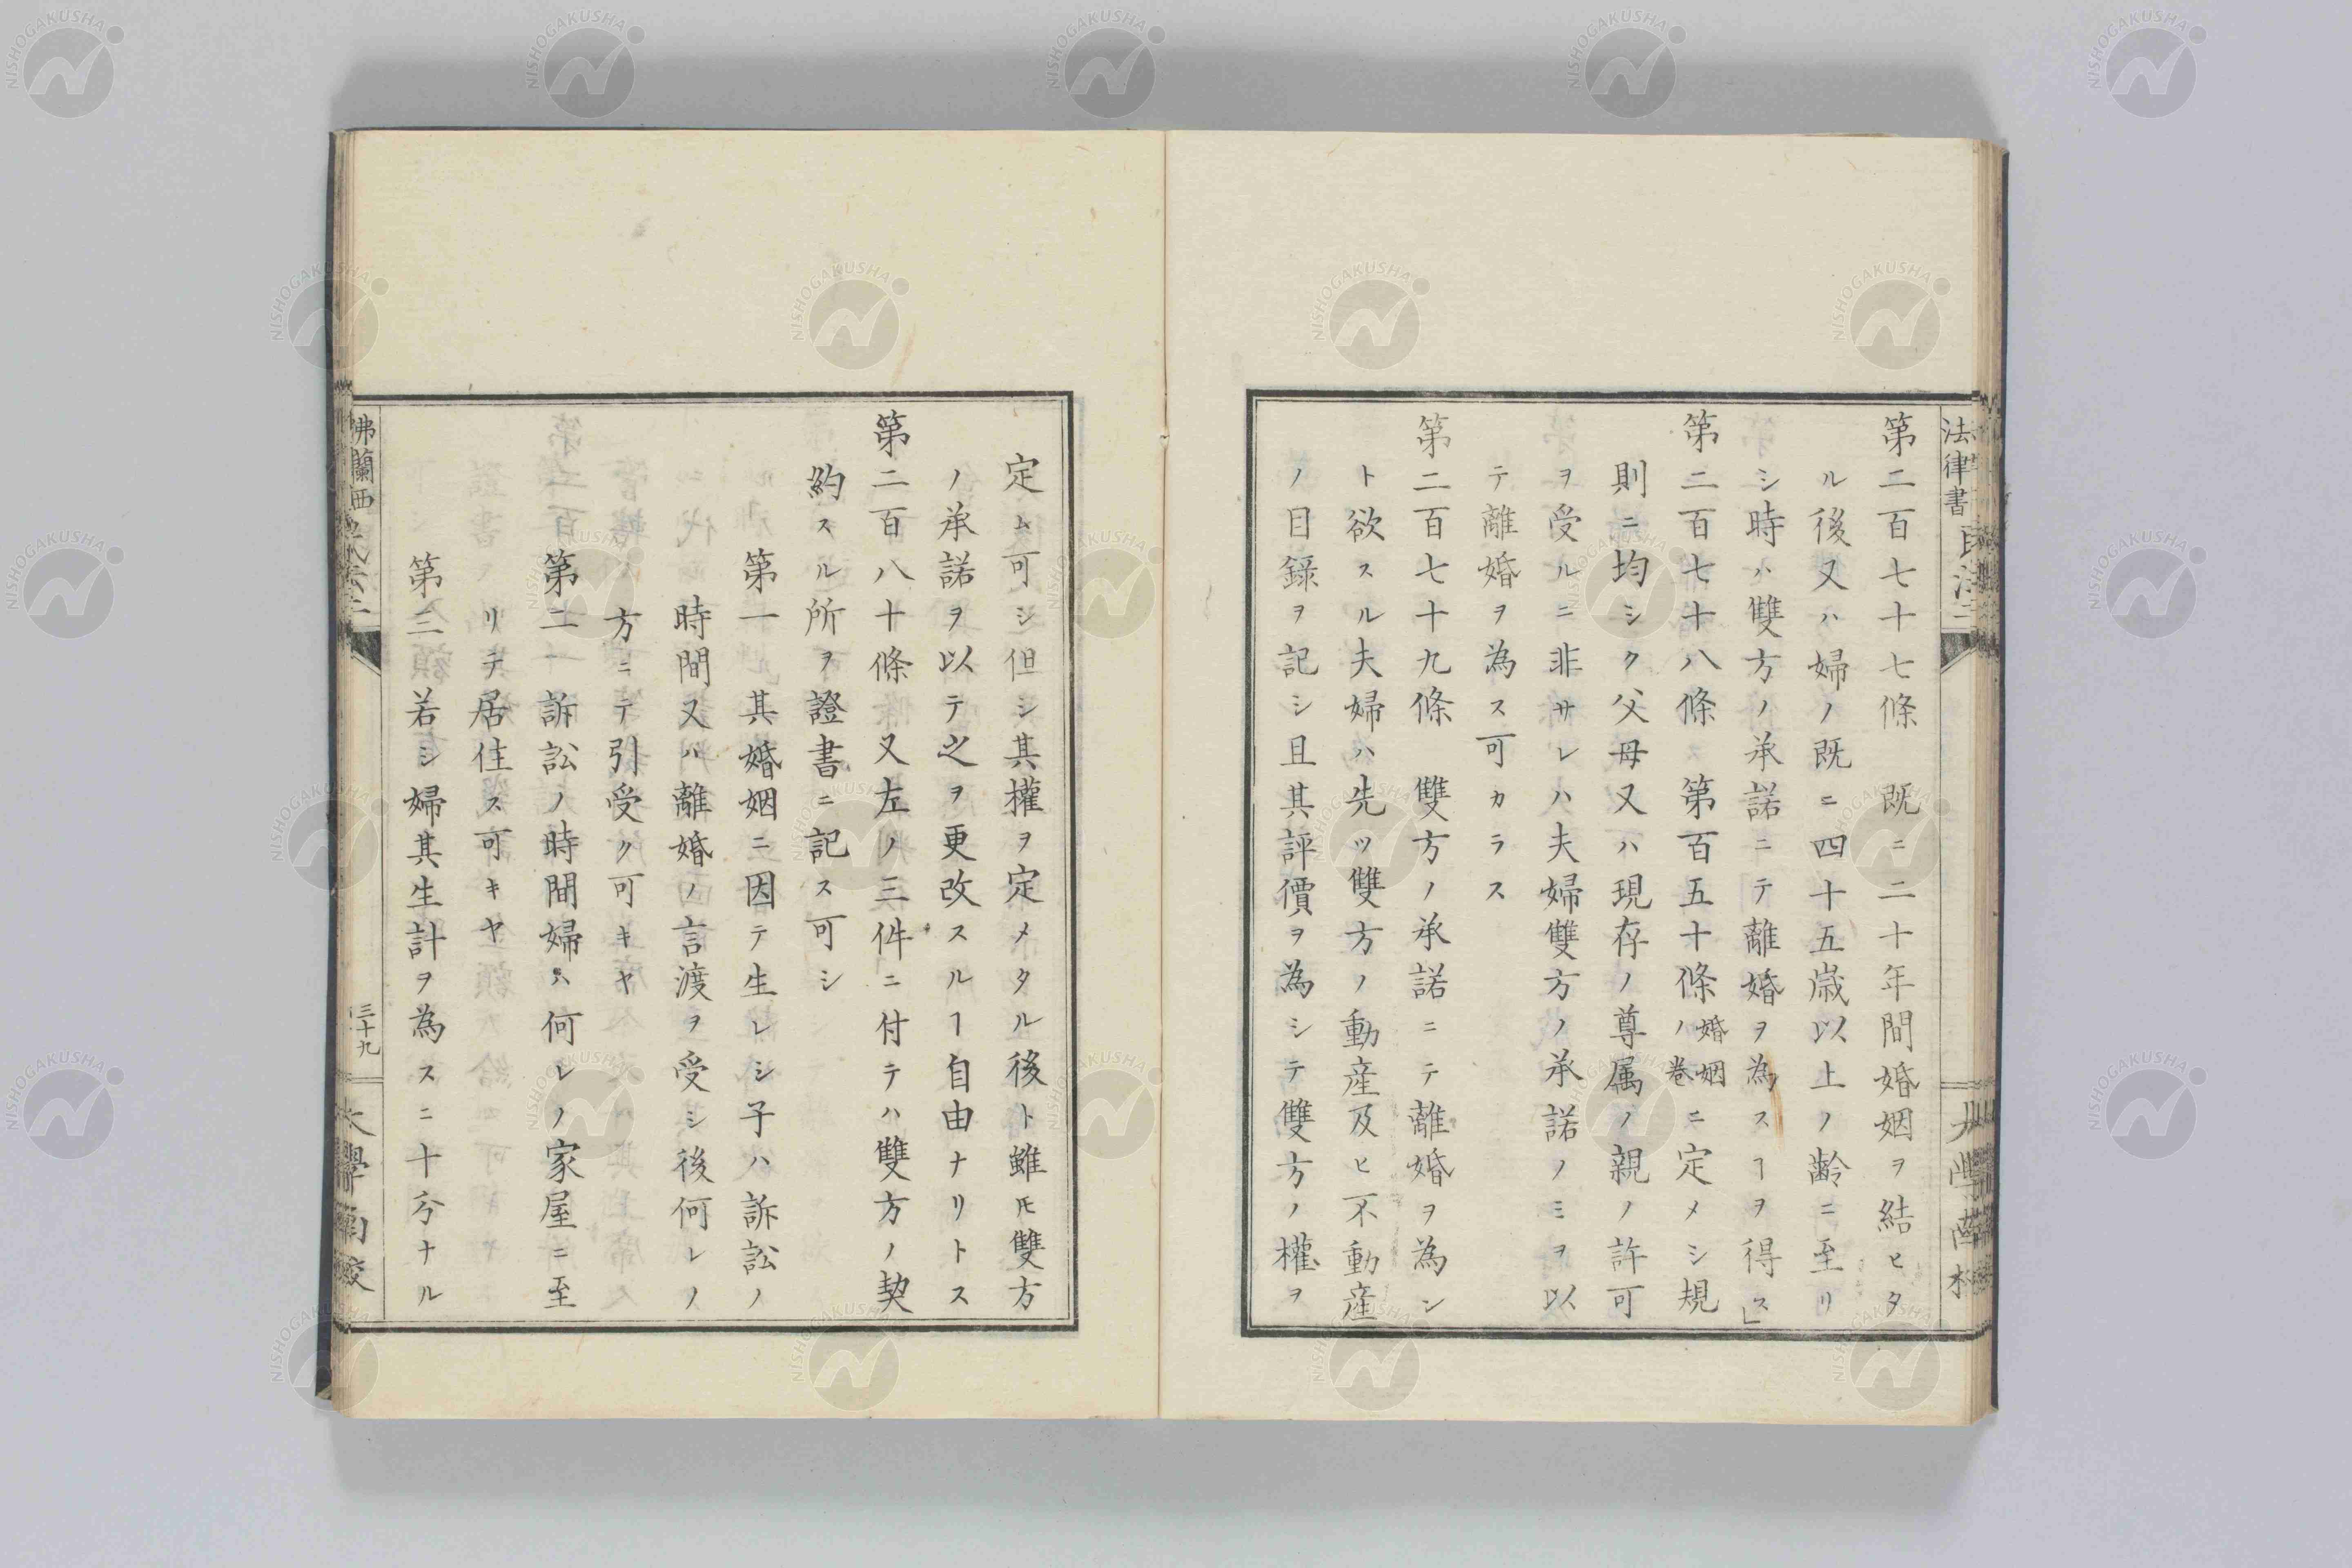 法律書 民法二
第二百七十七條　既ニ二十年間婚姻ヲ結ヒタ
ル後又ハ婦ノ既ニ四十五歳以上ノ齢ニ至リ
シ時ハ雙方ノ承諾ニテ離婚ヲ為スヿヲ得ス」
第二百七十八條　第百五十條婚姻ノ巻ニ定メシ規
則ニ均シク父母又ハ現存ノ尊属ノ親ノ許可
ヲ受ルニ非サレハ夫婦雙方ノ承諾ノミヲ以
テ離婚ヲ為ス可カラス
第二百七十九條　雙方ノ承諾ニテ離婚ヲ為ン
ト欲スル夫婦ハ先ツ雙方ノ動産及ヒ不動産
ノ目録ヲ記シ且其評價ヲ為シテ雙方ノ權ヲ
定ム可シ但シ其權ヲ定メタル後ト雖𪜈雙方
ノ承諾ヲ以テ之ヲ更改スルヿ自由ナリトス
第二百八十條又左ノ三件ニ付テハ雙方ノ契
約スル所ヲ證書ニ記ス可シ
第一　其婚姻ニ因テ生レシ子ハ訴訟ノ
時間又ハ離婚ノ言渡ヲ受シ後何レノ
方ニテ引受ク可キヤ
第二　訴訟ノ時間婦ハ何レノ家屋ニ至
リテ居住ス可キヤ
第三　若シ婦其生計ヲ為スニ十分ナル
佛蘭西
三十九
大學南校
NISHOGAKUSHA